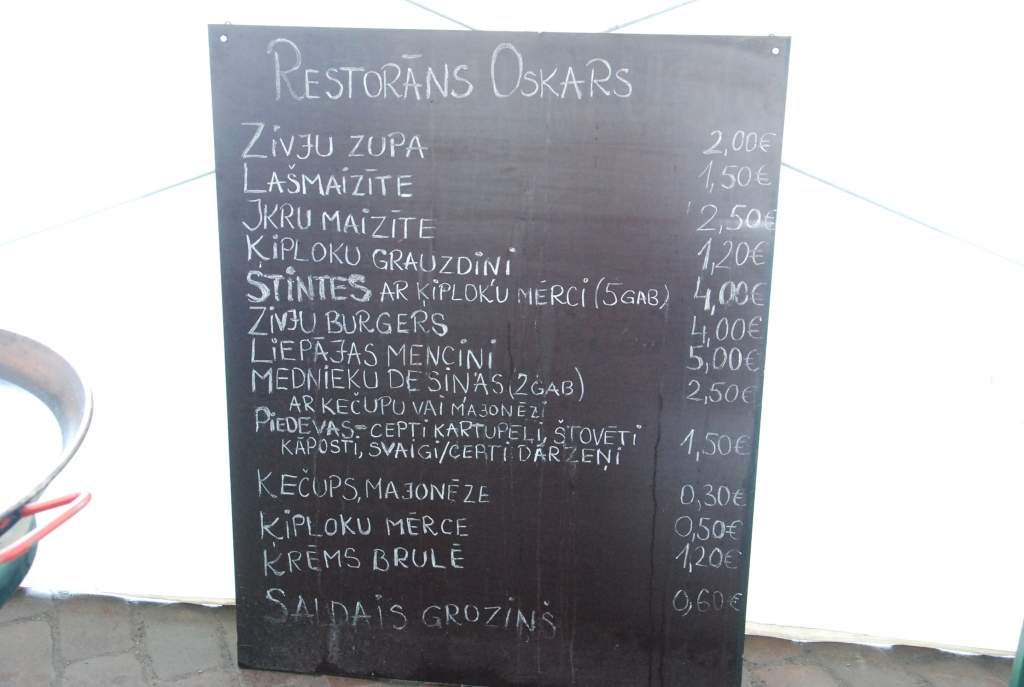 RESTORĀNS OSKARS
ZIVJU ZUPA 2,00€
LAŠMAIZĪTE 1,50€
IKRU MAIZĪTE 2,50€
ĶIPLOKU GRAUZDIŅI 1,20€
STINTES AR ĶIPLOKU MĒRCI (5GAB) 4,00€
ZIVJU BURGERS 4,00€
LIEPĀJAS MENCIŅI 5,00€
MEDNIEKU DESIŅAS (2GAB) 2,50€
AR KEČUPU VAI MAJONĒZI
PIEDEVAS - CEPTI KARTUPEĻI, ŠTOVĒTI
KĀPOSTI, SVAIGI/CEPTI DĀRZEŅI 1,50€
KEČUPS, MAJONĒZE 0,30€
ĶIPLOKU MĒRCE 0,50€
ĶRĒMS BRULĒ 1,20€
SALDAIS GROZIŅŠ 0,60€